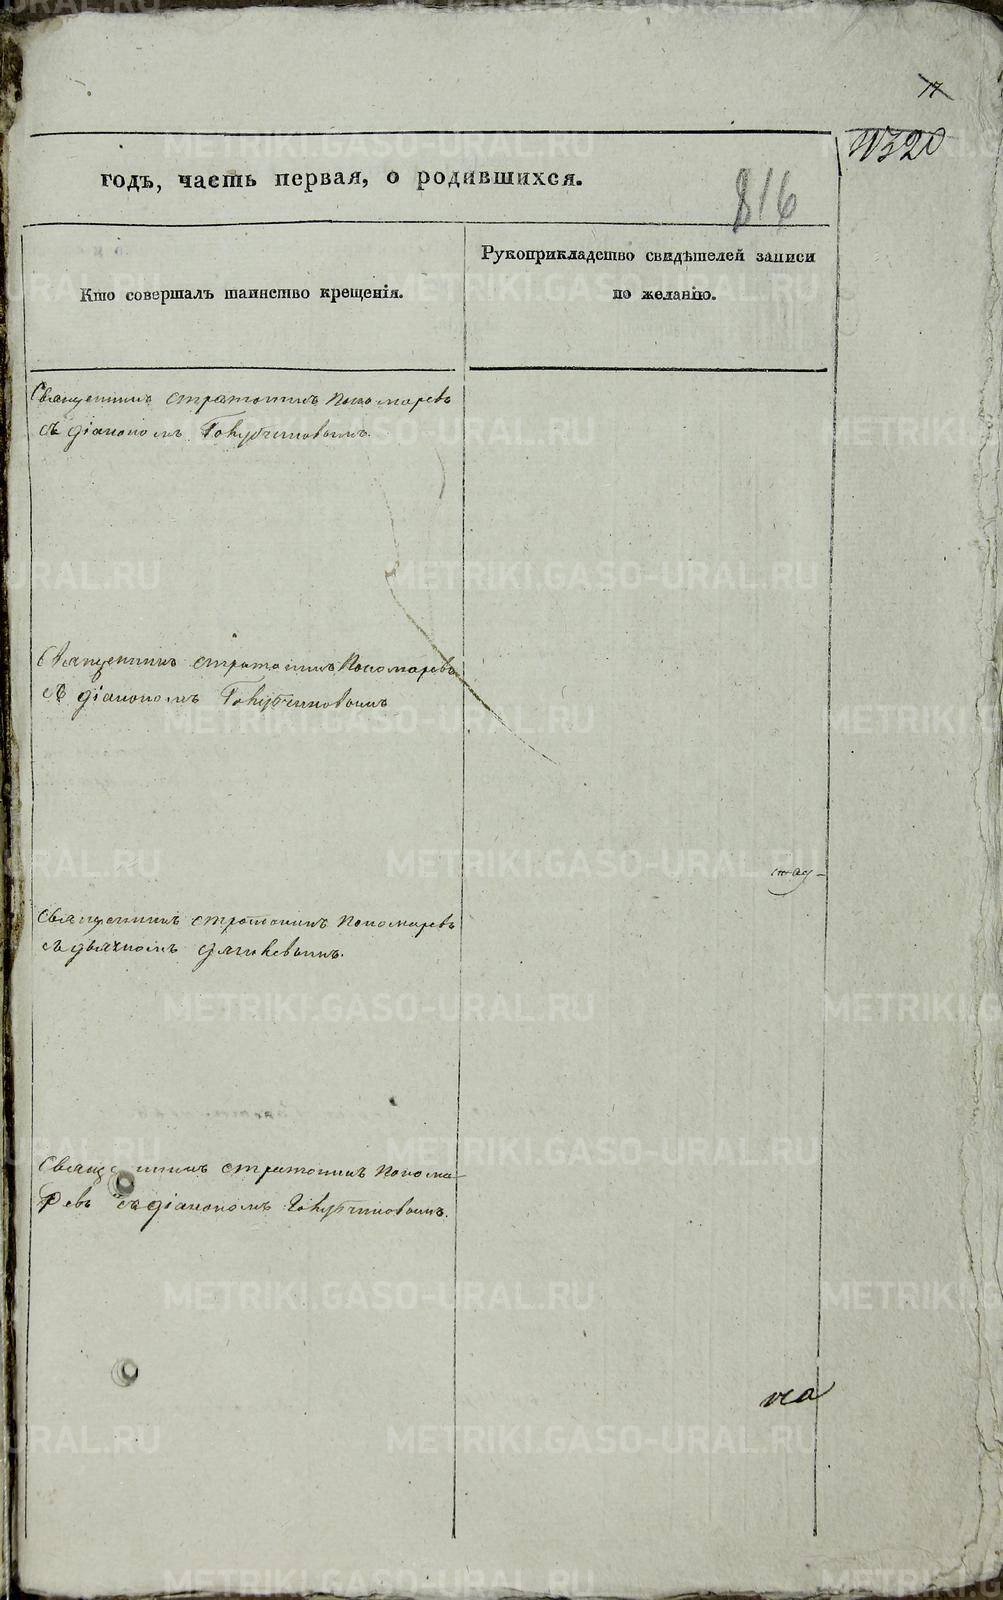 17
1320
годъ, часть первая, о родившихся.
816
Кто совершалъ таинство крещенія.
Рукоприкладство свидѣтелей записи
по желанію.
Священникъ Стратоникъ Пономаревъ
съ діакономъ Голубчиковымъ.
Священникъ Стратоникъ Пономаревъ
съ діакономъ Голубчиковымъ
Священникъ Стратоникъ Пономаревъ
съ дьячкомъ
Священникъ Стратоникъ Понома-
ревъ съ діакономъ Голубчиковымъ.
METRIKI.GASO-URAL.RU